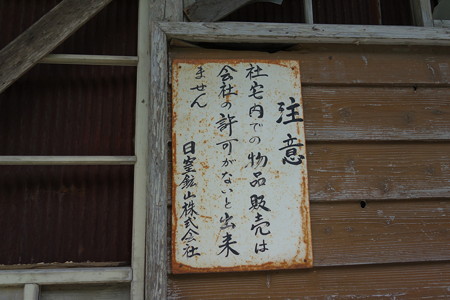 注意
社宅内での物品販売は
会社の許可がないと出来
ません
日窒鉱山株式会社